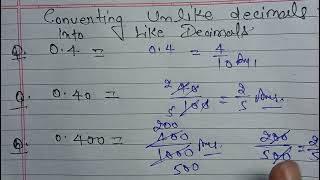 Converting Unlike decimals
into Like Decimals
Q. 0.4 = 0.4 = 4/10 Ans.
Q. 0.40 = 2 40/100 5 = 2/5 Ans.
Q. 0.400 = 200 400/1000 500 Ans. 200/500 = 2/5